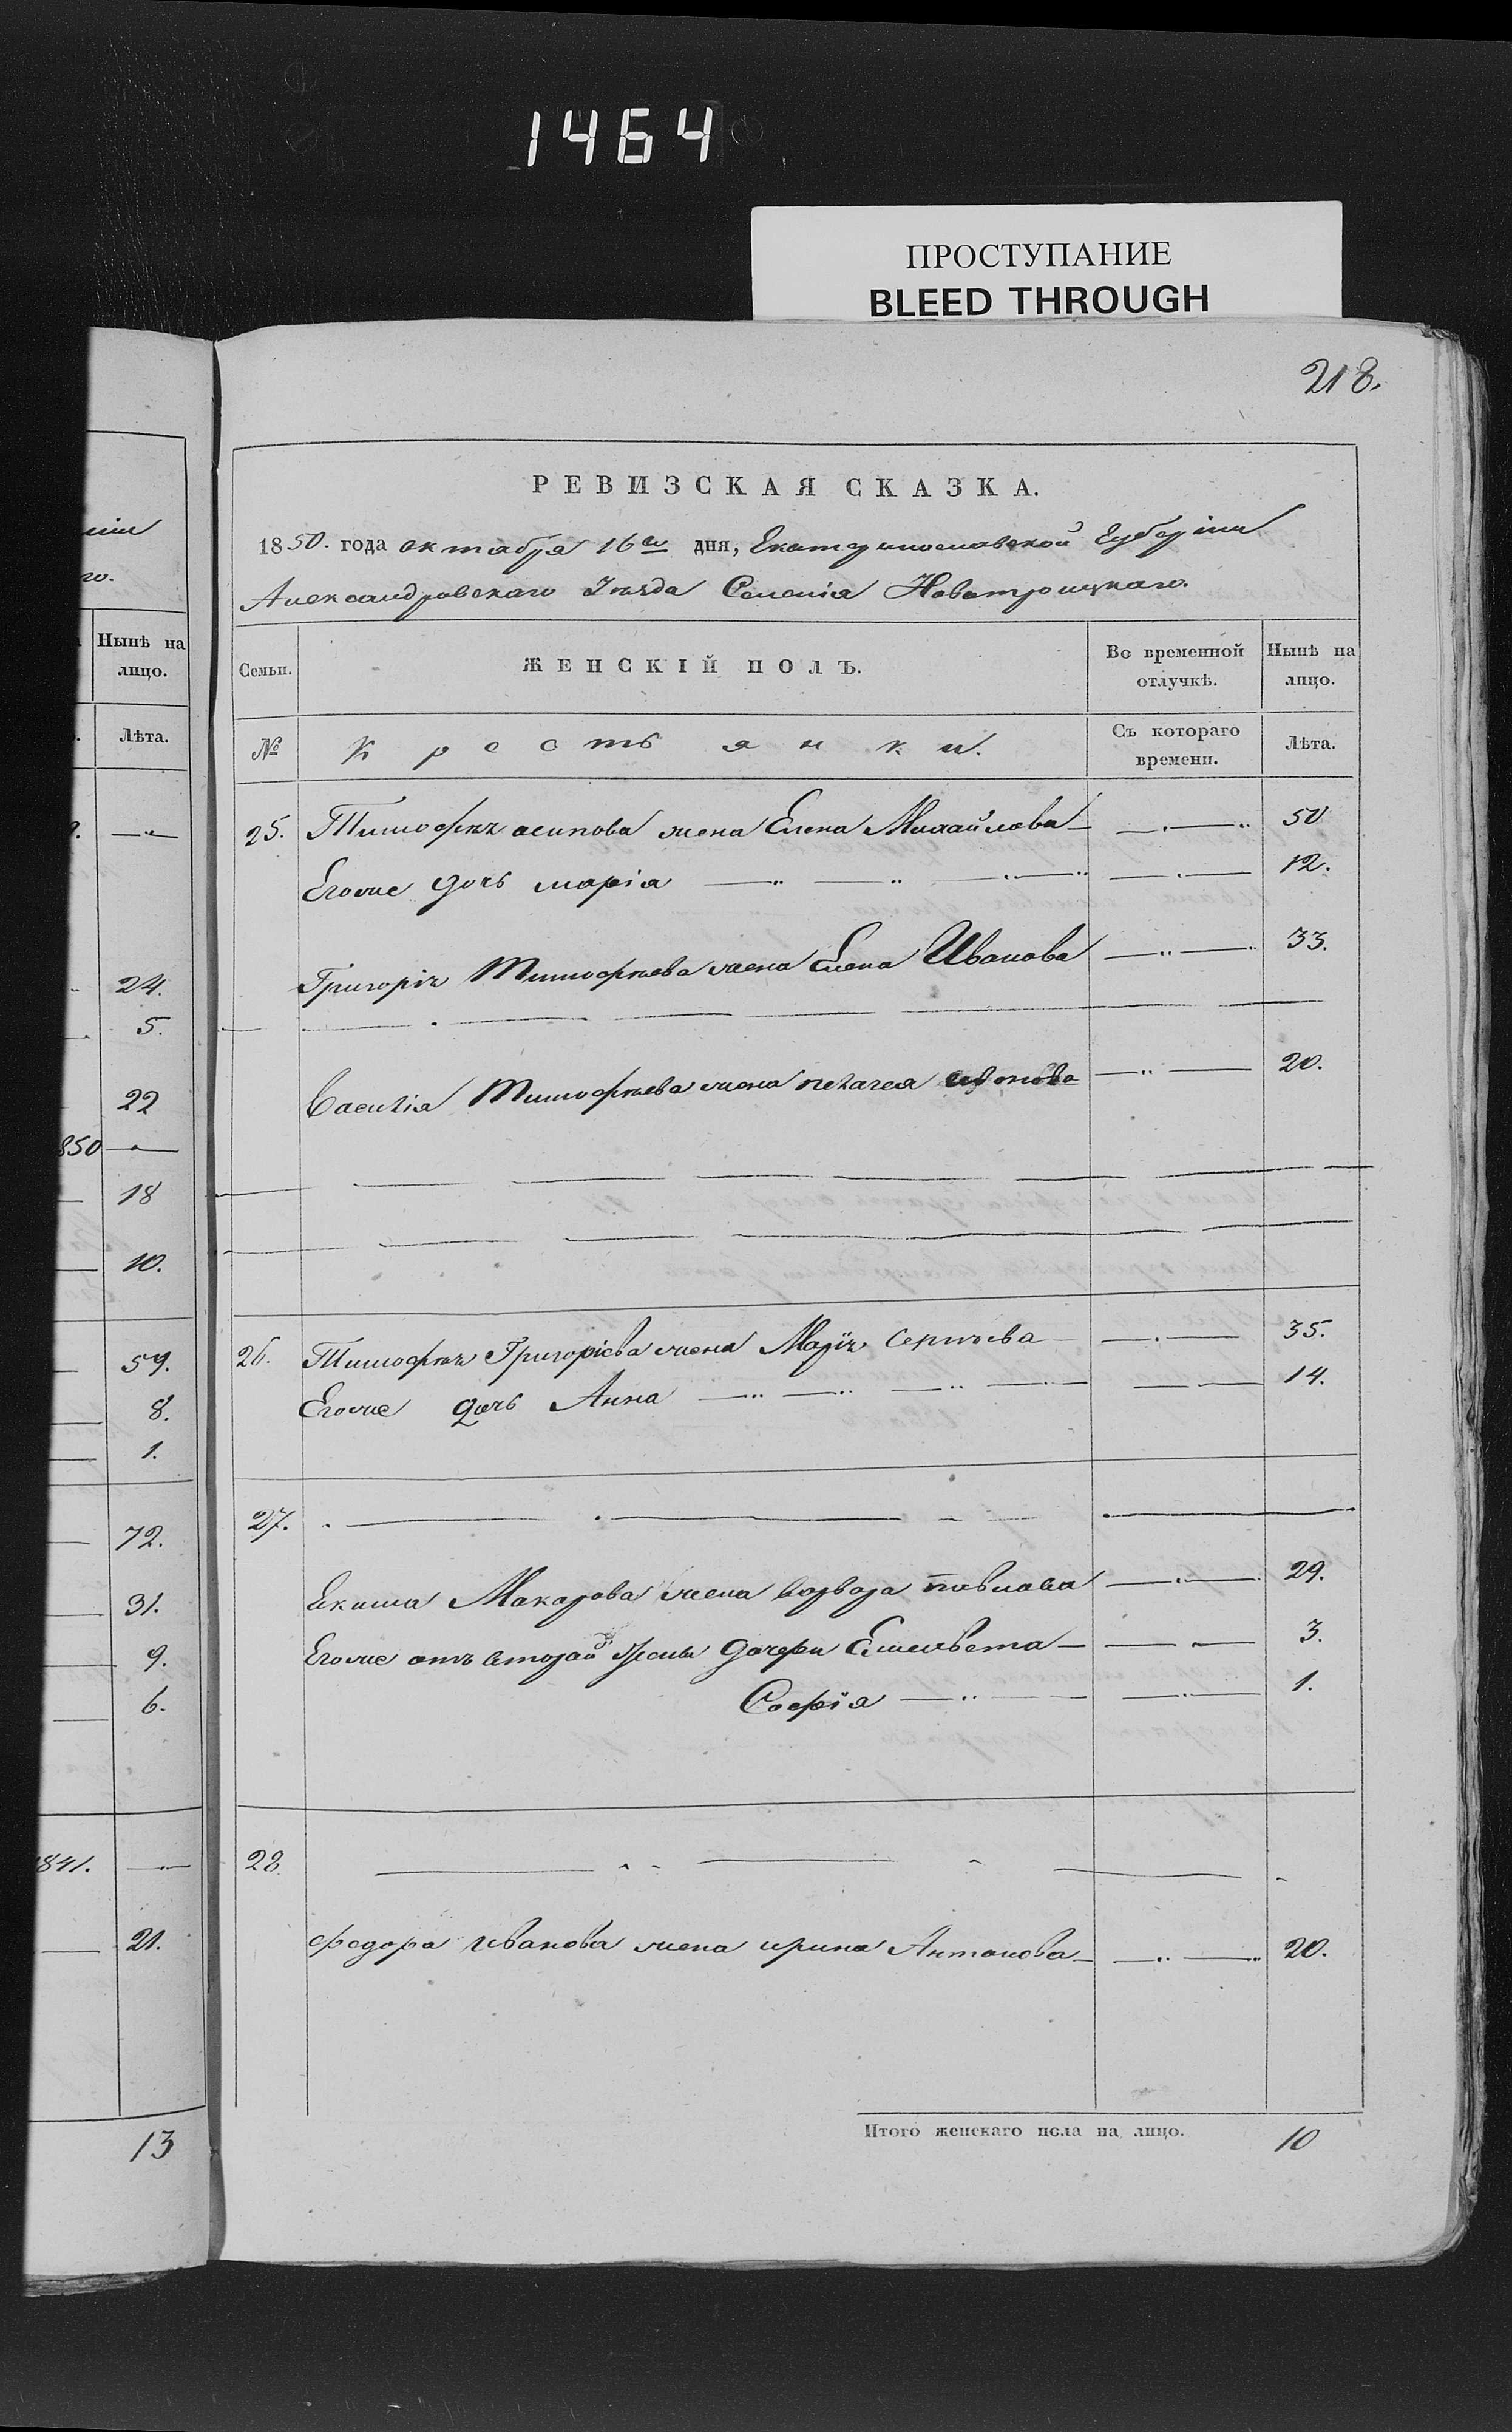 1464
ПРОСТУПАНИЕ
BLEED THROUGH
218.
РЕВИЗСКАЯ СКАЗКА.
1850. года октября 16го дня, Екатеринославской Губерніи
Александровскаго Уѣзда Селенія Новотроицкаго.
Нынѣ на лицо.
Лѣта.
24.
5.
22
850
18
10.
59.
8.
1.
72.
31.
9.
6.
1841.
21.
13
Семьи. ЖЕНСКІЙ ПОЛЪ. Во временной отлучкѣ. Нынѣ на лицо.
№ Крестьянки. Съ котораго времени. Лѣта.
25. Тимофѣя осипова жена Елена Михайлова 50
Егоже дочь марія 12.
Григорія Тимофѣева жена Елена Иванова 33.
Василія Тимофѣева жена пелагея 20.
26. Тимофѣя Григоріева жена Марія Сергѣева 35.
Егоже дочь Анна 14.
27.
Екима Макарова жена Варвара павлова 29.
Егоже отъ второй жены дочери Елисавета 3.
Софія 1.
28
федора иванова жена ирина Антонова 20.
Итого женскаго пола на лицо. 10